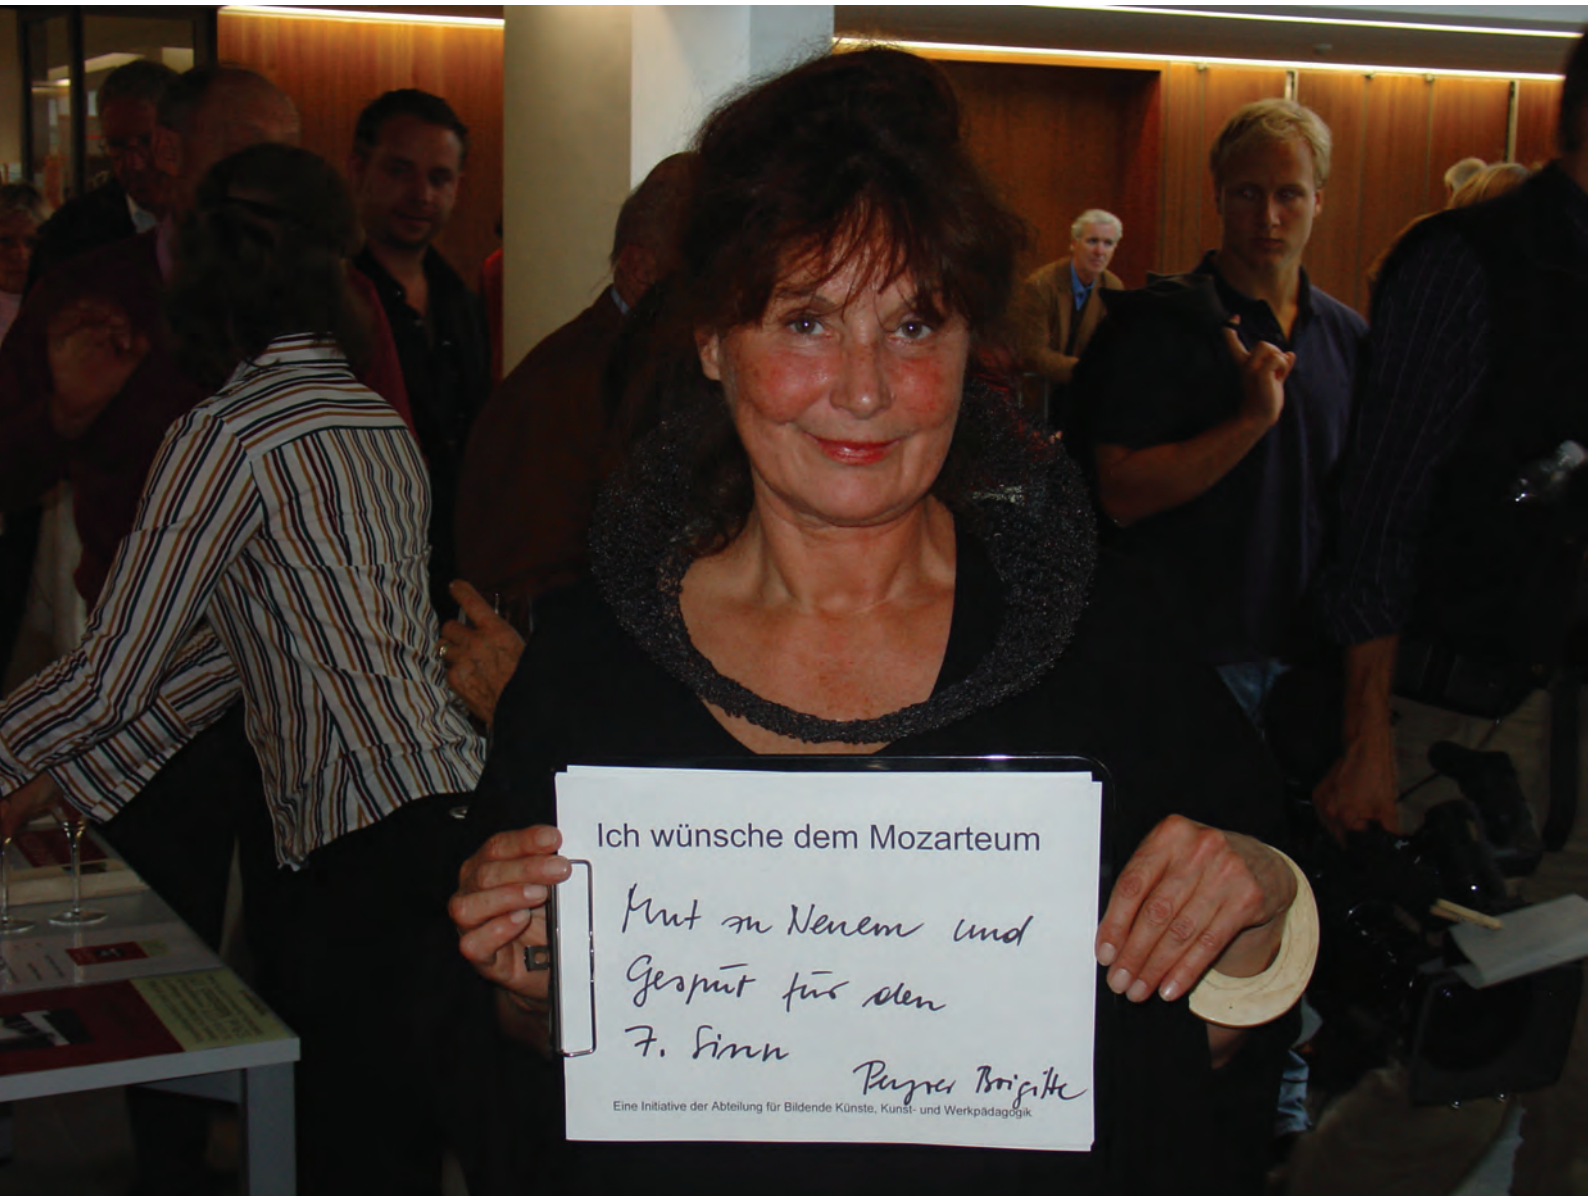 Ich wünsche dem Mozarteum
Mut zu Neuem und
Gespür für den
7. Sinn
Brigitte
Eine Initiative der Abteilung für Bildende Künste, Kunst- und Werkpädagogik